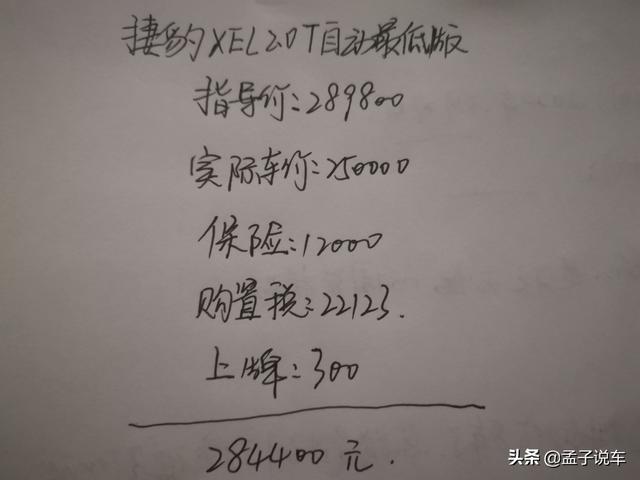 捷豹XEL2.0T自动最低版
指导价:289800
实际车价:250000
保险:12000
购置税:22123.
上牌:300
284400元.
头条 @孟子说车